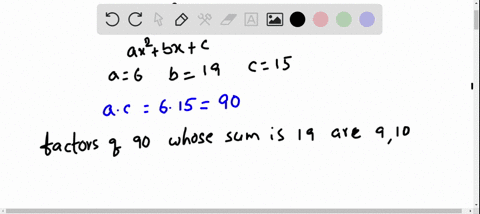 ax²+bx+c
a=6 b=19 c=15
a.c = 6.15 = 90
factors of 90 whose sum is 19 are 9,10